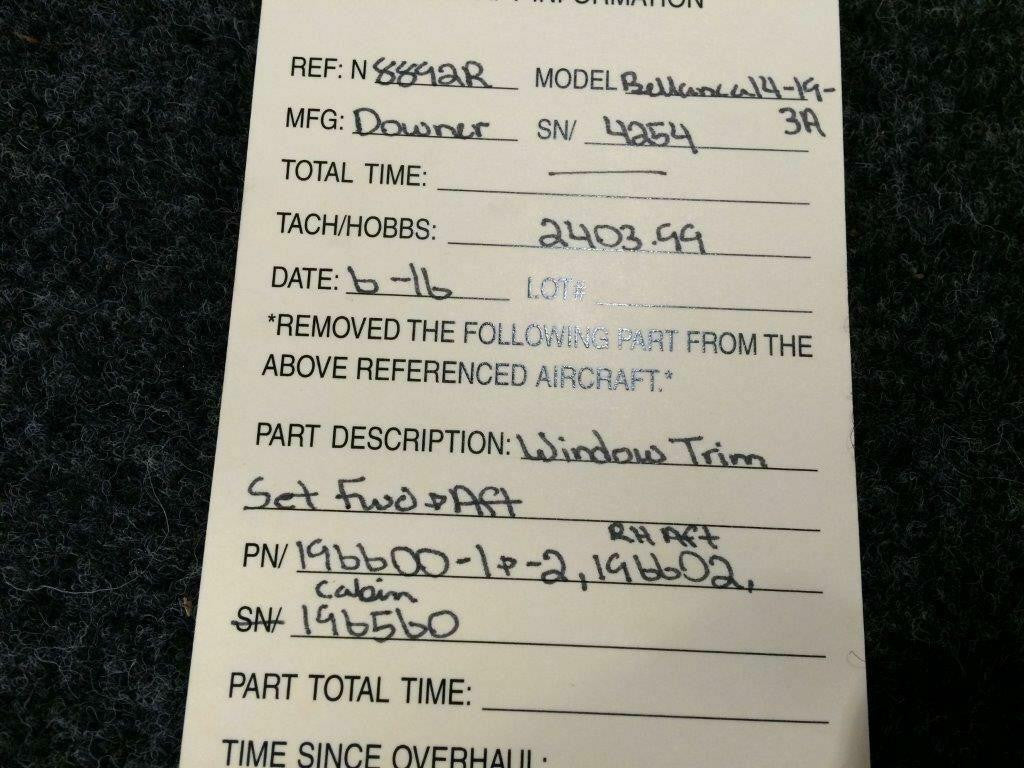 INFORMATION
REF: N 8892R MODEL Bellanca 14-19-
3A
MFG: Downer SN/ 4254
TOTAL TIME: —
TACH/HOBBS: 2403.99
DATE: 6-16 LOT#
*REMOVED THE FOLLOWING PART FROM THE
ABOVE REFERENCED AIRCRAFT.*
PART DESCRIPTION: Window Trim
Set Fwd & Aft
RH Aft
PN/ 196600-1 & -2, 196602,
Cabin
SN/ 196560
PART TOTAL TIME:
TIME SINCE OVERHAUL: